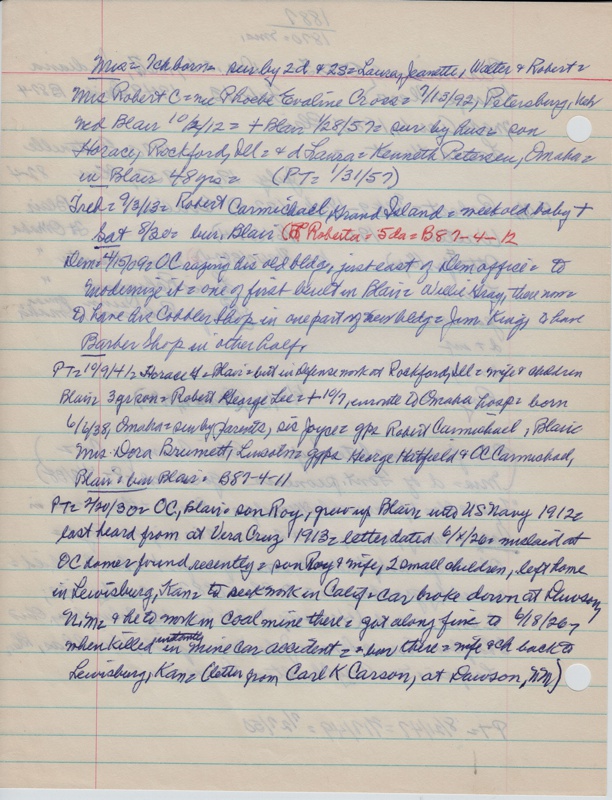 Mrs = Ichborn = sur by 2d & 2s = Laura, Jeanette, Walter & Robert =
Mrs Robert C = nee Phoebe Evaline Cross = 7/13/92, Petersburg,
md Blair 10/2/12 = + Blair 1/28/57 = sur by hus = son
Horace, Rockford, Ill = & d Laura = Kenneth Petersen, Omaha =
in Blair 48 yrs = (PT = 1/31/57)
Treb = 9/3/13 = Robert Carmichael, Grand Island = week old baby +
Sat 8/30 = bur. Blair (Roberta = 5da = B87-4-12
Dem = 4/15/09 = OC razing his old bldg, just east of Dem office = to
modernize it = one of first built in Blair = Willie Gray, there now =
to have his Cobbler Shop in one part of new bldg = Jim King, to have
Barber Shop in other half,
PT = 10/9/41 = Horace = Blair = but in defense work at Rockford, Ill = wife & children
Blair = 3 yr son = Robert George Lee = + 10/7, enroute to Omaha hosp = born
6/6/38, Omaha = sur by parents, sis Joyce = gps Robert Carmichael, Blair =
Mrs. Dora Brumett, Lincoln = ggps George Hatfield & OC Carmichael,
Blair = bur Blair = B87-4-11
PT = 2/20/30 = OC, Blair = son Roy, grew up Blair = into US Navy 1912 =
last heard from at Vera Cruz 1913 = letter dated = mislaid at
OC home = found recently = son Roy & wife, 2 small children, left home
in Lewisburg, Kan = to seek work in Calif = car broke down at Dawson,
N.M = & he to work in coal mine there = got along fine to 6/8/26 =
when killed instantly in mine car accident = bur, there = wife & ch back to
Lewisburg, Kan = (letter from Carl K Carson, at Dawson, N.M)